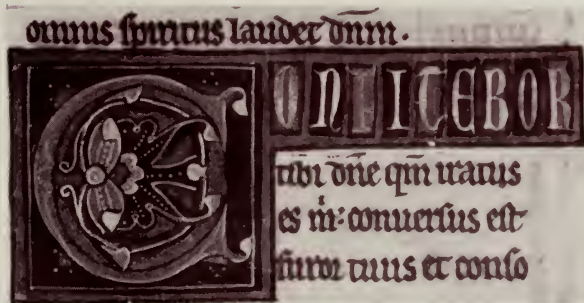 omnis spiritus laudet dnm.
CONFITEBOR
tibi dne qm iratus
es m: conuersus est
furor tuus et conso